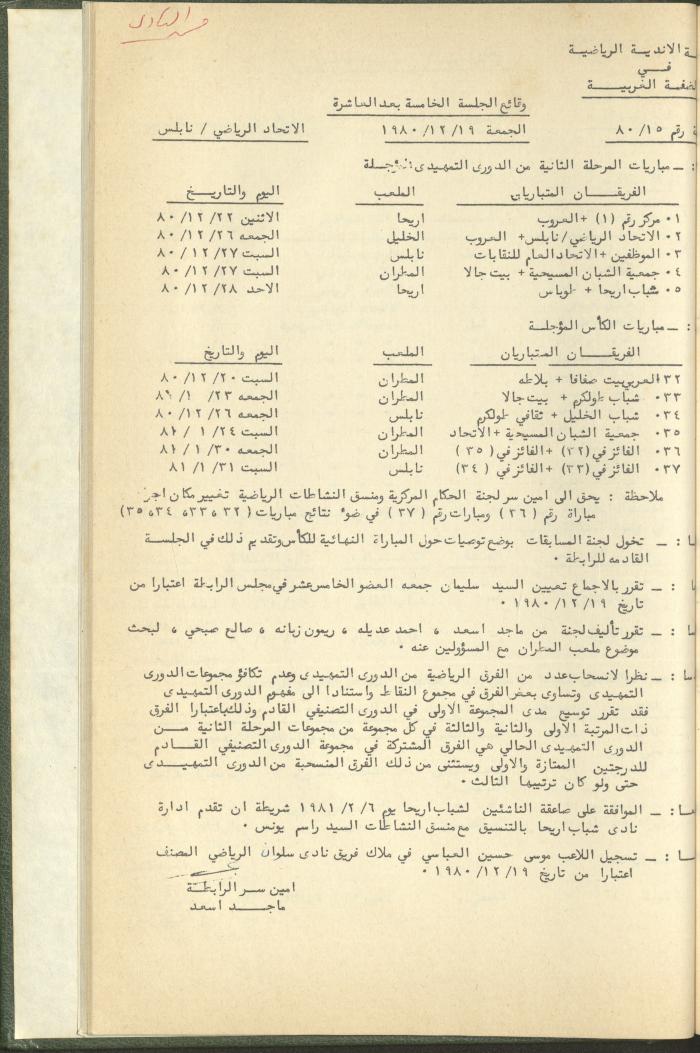 النادي
ـة الاندية الرياضية
فـــي
لضفة الغربيـــة
وقائع الجلسة الخامسة بعد العاشرة
ـة رقم ٨٠/١٥ الجمعة ١٩/ ١٢/ ١٩٨٠ الاتحاد الرياضي / نابلس
: ــ مباريات المرحلة الثانية من الدورى التمهيدى المؤجلـة
الفريقـــان المتباريان الملعـب اليوم والتاريـخ
١٠ مركز رقم (١) + العروب اريحا الاثنين ٢٢/ ١٢/ ٨٠
٢٠ الاتحاد الرياضي/ نابلس+ العروب الخليل الجمعه ٢٦/ ١٢/ ٨٠
٣٠ الموظفين + الاتحاد العام للنقابات نابلس السبت ٢٧/ ١٢/ ٨٠
٤٠ جمعية الشبان المسيحية + بيت جالا المطران السبت ٢٧/ ١٢/ ٨٠
٥٠ شباب اريحا + طوباس اريحا الاحد ٢٨/ ١٢/ ٨٠
: ــ مباريات الكأس المؤجلـة
الفريقـــان المتباريان الملعـب اليوم والتاريخ
٣٢ العربي بيت صفافا + بلاطه المطران السبت ٢٠/ ١٢/ ٨٠
٣٣٠ شباب طولكرم + بيت جالا المطران الجمعه ٢٣/ ١/ ٨١
٣٤٠ شباب الخليل + ثقافي طولكرم نابلس الجمعه ٢٦/ ١٢/ ٨٠
٣٥٠ جمعية الشبان المسيحية + الاتحاد المطران السبت ٢٤/ ١/ ٨١
٣٦٠ الفائز في (٣٢) + الفائز في ( ٣٥ ) المطران الجمعه ٣٠/ ١/ ٨١
٣٧٠ الفائز في (٣٣) + الفائز في ( ٣٤) نابلس السبت ٣١/ ١/ ٨١
ملاحظة : يحق الى امين سر لجنة الحكام المركزية ومنسق النشاطات الرياضية تغيير مكان اجر
مباراة رقم ( ٣٦ ) ومباراة رقم ( ٣٧ ) في ضوء نتائج مباريات ( ٣٢ ، ٣٣، ٣٤، ٣٥)
ـا : ــ تخول لجنة المسابقات بوضع توصيات حول المباراة النهائية للكأس وتقديم ذلك في الجلسـة
القادمه للرابطة ٠
ـا : ــ تقرر بالاجماع تعيين السيد سليمان جمعه العضو الخامس عشر في مجلس الرابطة اعتبارا من
تاريخ ١٩/ ١٢/ ١٩٨٠ ٠
ـا : ــ تقرر تأليف لجنة من ماجد اسعد ، احمد عديله ، ريمون زبانه ، صالح صبحي ، لبحث
موضوع ملعب المطران مع المسؤولين عنه ٠
ـا : ــ نظرا لانسحاب عدد من الفرق الرياضية من الدورى التمهيدى وعدم تكافؤ مجموعات الدورى
التمهيدى وتساوى بعض الفرق في مجموع النقاط واستنادا الى مفهوم الدورى التمهيدى
فقد تقرر توسيع مدى المجموعة الاولى في الدورى التصنيفي القادم وذلك باعتبار الفرق
ذات المرتبة الاولى والثانية والثالثة في كل مجموعة من مجموعات المرحلة الثانية مـــن
الدورى التمهيدى الحالي هي الفرق المشتركة في مجموعة الدورى التصنيفي القـــادم
للدرجتين الممتازة والاولى ويستثنى من ذلك الفرق المنسحبة من الدورى التمهيـــدى
حتى ولو كان ترتيبها الثالث ٠
ـا: ــ الموافقة على صاعقة الناشئين لشباب اريحا يوم ٦/ ٢/ ١٩٨١ شريطة ان تقدم ادارة
نادى شباب اريحا بالتنسيق مع منسق النشاطات السيد راسم يونس ٠
ـا : ــ تسجيل اللاعب موسى حسين العباسي في ملاك فريق نادى سلوان الرياضي المصنف
اعتبارا من تاريخ ١٩/ ١٢/ ١٩٨٠ ٠
امين سر الرابطـة
ماجـــد اسعد